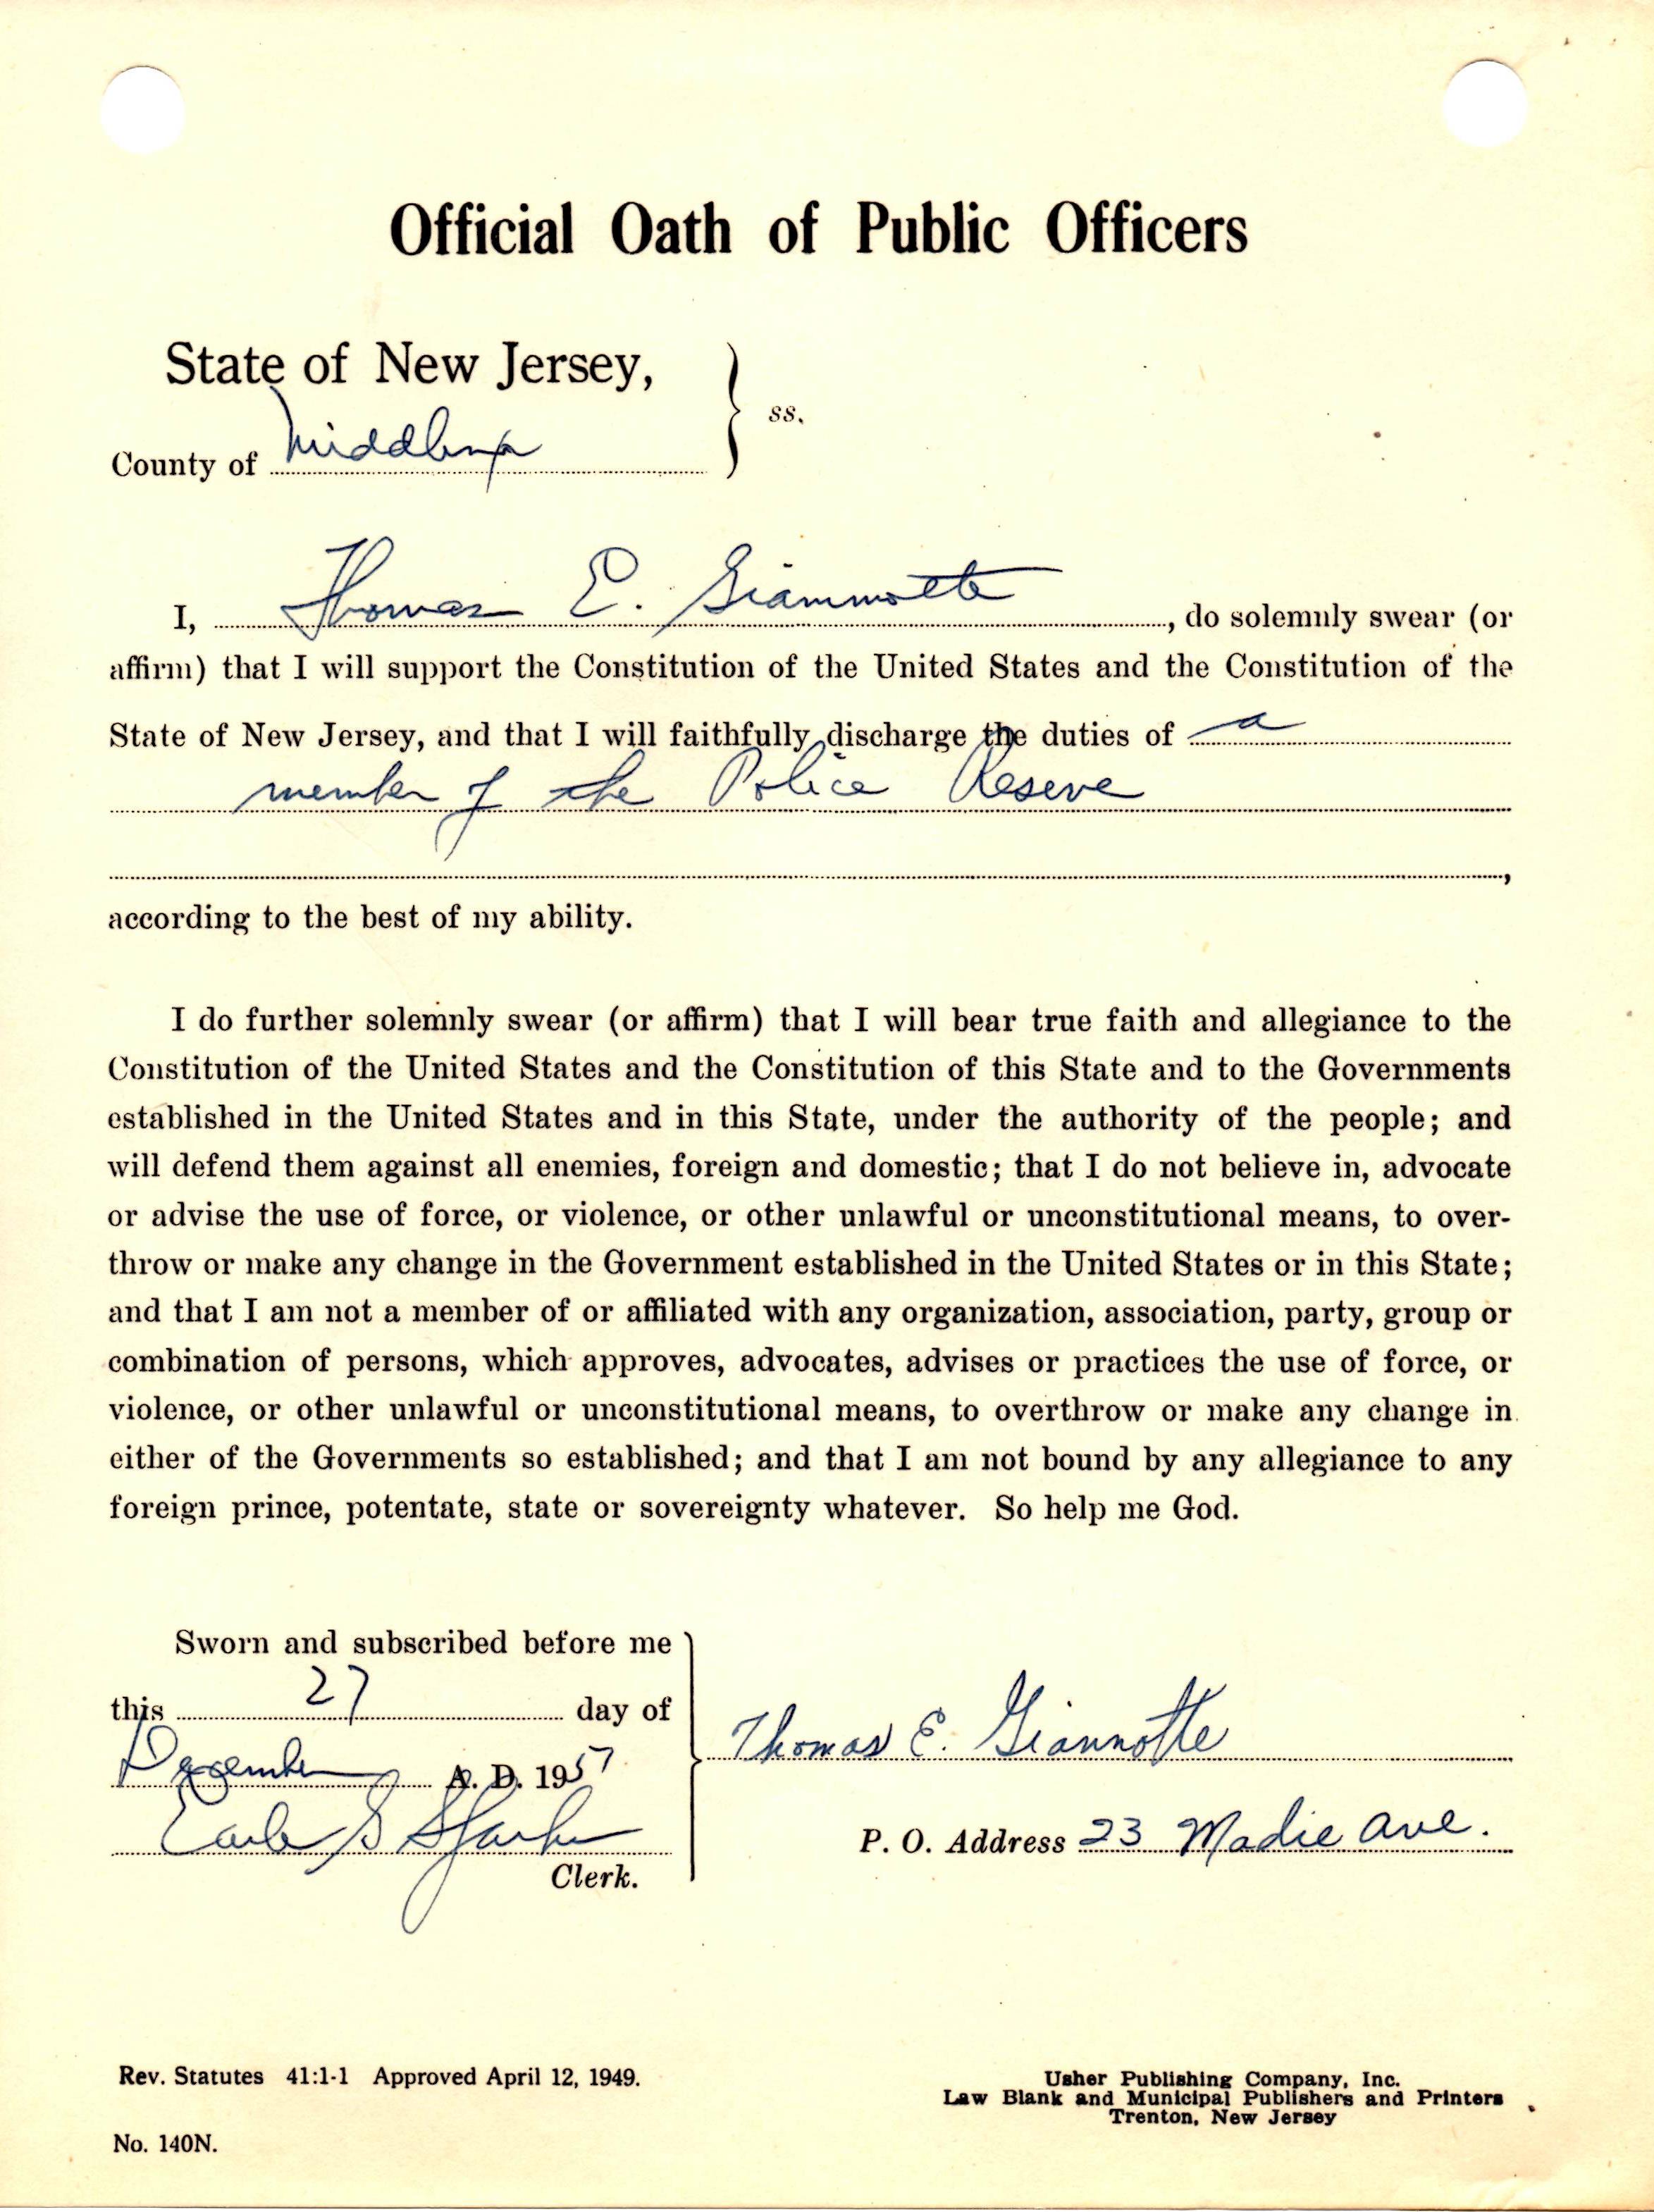 Official Oath of Public Officers
State of New Jersey,
ss.
County of Middlesex
I, Thomas E. Giannotte, do solemnly swear (or
affirm) that I will support the Constitution of the United States and the Constitution of the
State of New Jersey, and that I will faithfully discharge the duties of a
member of the Police Reserve
,
according to the best of my ability.
I do further solemnly swear (or affirm) that I will bear true faith and allegiance to the
Constitution of the United States and the Constitution of this State and to the Governments
established in the United States and in this State, under the authority of the people; and
will defend them against all enemies, foreign and domestic; that I do not believe in, advocate
or advise the use of force, or violence, or other unlawful or unconstitutional means, to over-
throw or make any change in the Government established in the United States or in this State;
and that I am not a member of or affiliated with any organization, association, party, group or
combination of persons, which approves, advocates, advises or practices the use of force, or
violence, or other unlawful or unconstitutional means, to overthrow or make any change in
either of the Governments so established; and that I am not bound by any allegiance to any
foreign prince, potentate, state or sovereignty whatever. So help me God.
Sworn and subscribed before me
this 27 day of
December A. D. 1957
Thomas E. Giannotte
Clerk.
P. O. Address 23 Madie Ave.
Rev. Statutes 41:1-1 Approved April 12, 1949.
No. 140N.
Usher Publishing Company, Inc.
Law Blank and Municipal Publishers and Printers
Trenton, New Jersey